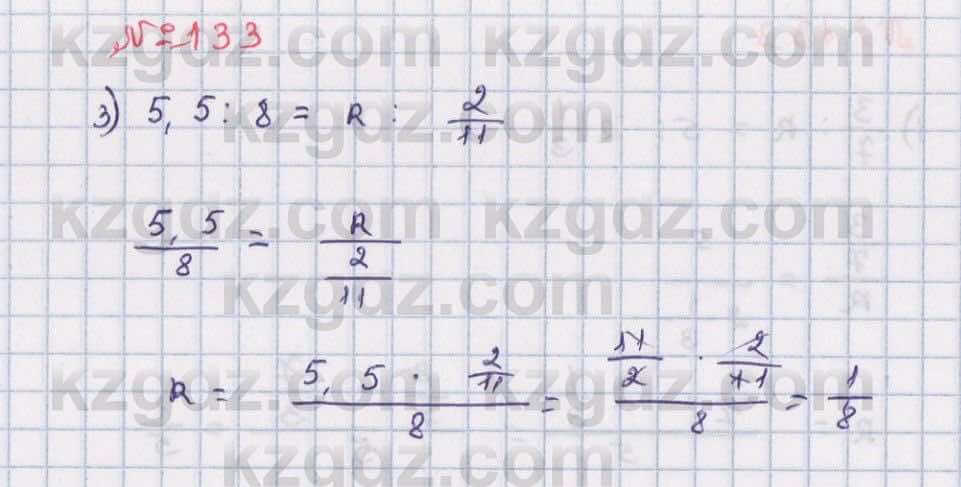 №133
3) 5,5 : 8 = R : 2/11
5,5/8 = R/(2/11)
R = (5,5 · 2/11)/8 = (11/2 · 2/11)/8 = 1/8
kzgdz.com kzgdz.com
kzgdz.com
kzgdz.com kzgdz.com
kzgdz.com
kzgdz.com kzgdz.com
kzgdz.com